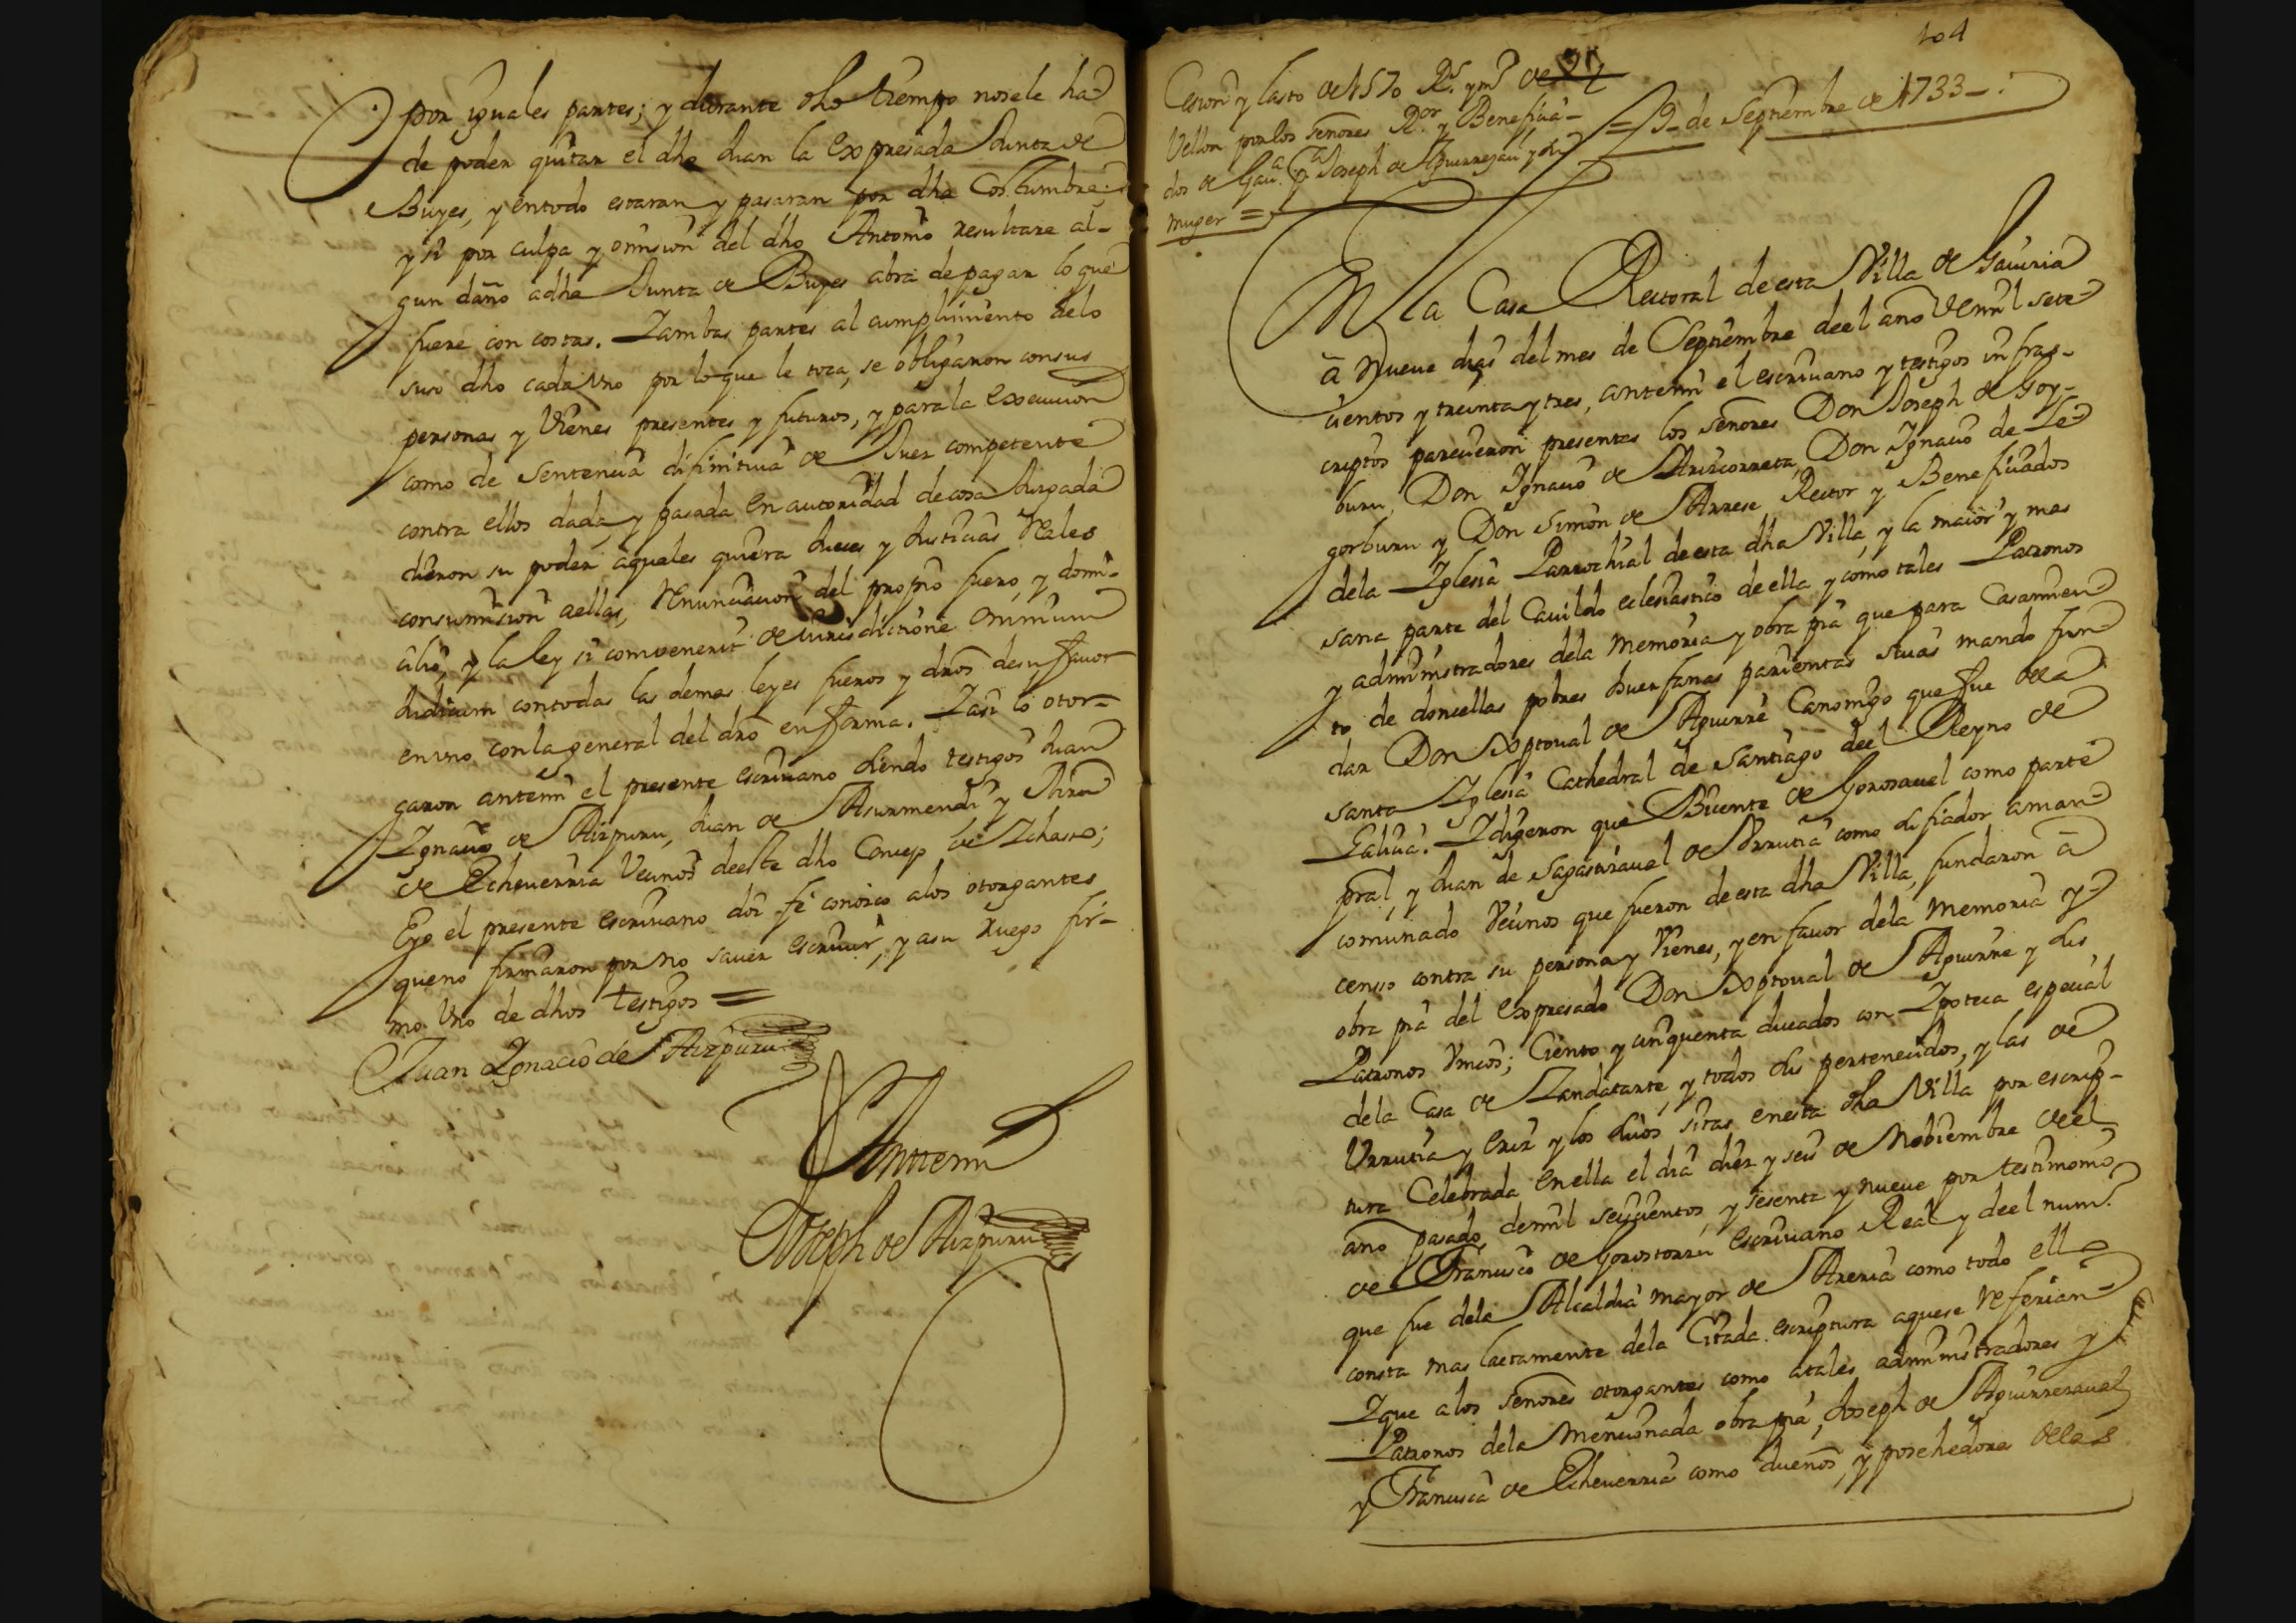 por yguales partes; y durante dho tiempo nosele ha
de poder quitar el dho Juan la expresada Junta de
Buyes, y entodo estaran y pasaran por dha Costumbre:
y si por culpa y omision del dho Antonio resultare al-
gun daño adha Junta de Buyes abra de pagar lo que
fuere con costas. Y ambas partes al cumplimiento delo
suso dho cada Uno por lo que le toca, se obligaron consus
personas y Vienes presentes y futuros, y para la execucion
como de Sentencia difinitiva de Juez competente
contra ellos dada, y pasada en autoridad de cosa Juzgada
dieron su poder aquales quiera Jueces y Justicias Reales
consumision aellas, Renunciacion del propio fuero, y domi-
cilio, y la ley si comvenerit de iurisdictione omnium
Judicum contodas las demas leyes fueros y dros desu favor
enuno conla general del dro en forma. Y asi lo otor-
garon antemi el presente escriuano siendo testigos Juan
Ygnacio de Aizpuru, Juan de Asurmendi y
de Echeuerria Vecinos deeste dho Concejo de Ychaso;
E yo el presente escriuano doi fe conozco alos otorgantes
queno firmaron por no sauer escriuir, y asu ruego fir-
mo Uno de dhos testigos =
Juan Ygnacio de Aizpuru
Antemi
Joseph de Aizpuru
104
Cesion y lasto de 1570 Rs. y ms de
Vellon por los señores Ror. y Beneficia-
dos de Gaua. Pa. Joseph de Aguirrezaual y su
muger =
= 9 de Septiembre de 1733 -.
En la Casa Rectoral deesta Villa de Gauiria
a Nueue dias del mes de Septiembre deel año de mil sete-
cientos y treinta y tres, antemi el escriuano y testigos infras-
criptos parecieron presentes los señores Don Joseph de Goy-
buru, Don Ygnacio de Ariscorreta, Don Ygnacio de Le-
gorburu y Don Simon de Arrese Rector y Beneficiados
dela Yglesia Parrochial deesta dha Villa, y la maior y mas
sana parte del Cauildo eclesiastico de ella y como tales Patronos
y administradores dela memoria y obra pia que para Casamien-
to de doncellas pobres huerfanas parientas suias mando fun-
dar Don Xptoual de Aguirre Canonigo que fue dela
santa Yglesia Cathedral de Santiago deel Reyno de
Galicia. Y digeron que Bicente de Gorosauel como parte
pral, y Juan de Sagastizaual de Urrutia como su fiador aman
comunado Vecinos que fueron deesta dha Villa, fundaron a
censo contra su persona y Vienes, y en fauor dela Memoria y
obra pia del expresado Don Xptoual de Aguirre y sus
Patronos Unicos; Ciento y cinquenta ducados con Ypoteca especial
dela Casa de Landatante, y todos sus pertenecidos, y las de
Urrutia y y los suios sitas enesta dha Villa por escrip-
tura Celebrada en ella el dia diez y seis de Nobiembre deel
año pasado demil seiscientos, y sesenta y nueue por testimonio
de Francisco de Gorostorzu escriuano Real y deel num.o
que fue dela Alcaldia mayor de Areria como todo ello
consta mas laetamente dela Citada escriptura aquese referian
Y que alos Señores otorgantes como atales administradores y
Patronos dela Mencionada obra pia, Joseph de Aguirrezaual
y Francisca de Echeuerria como dueños, y posehedores delas